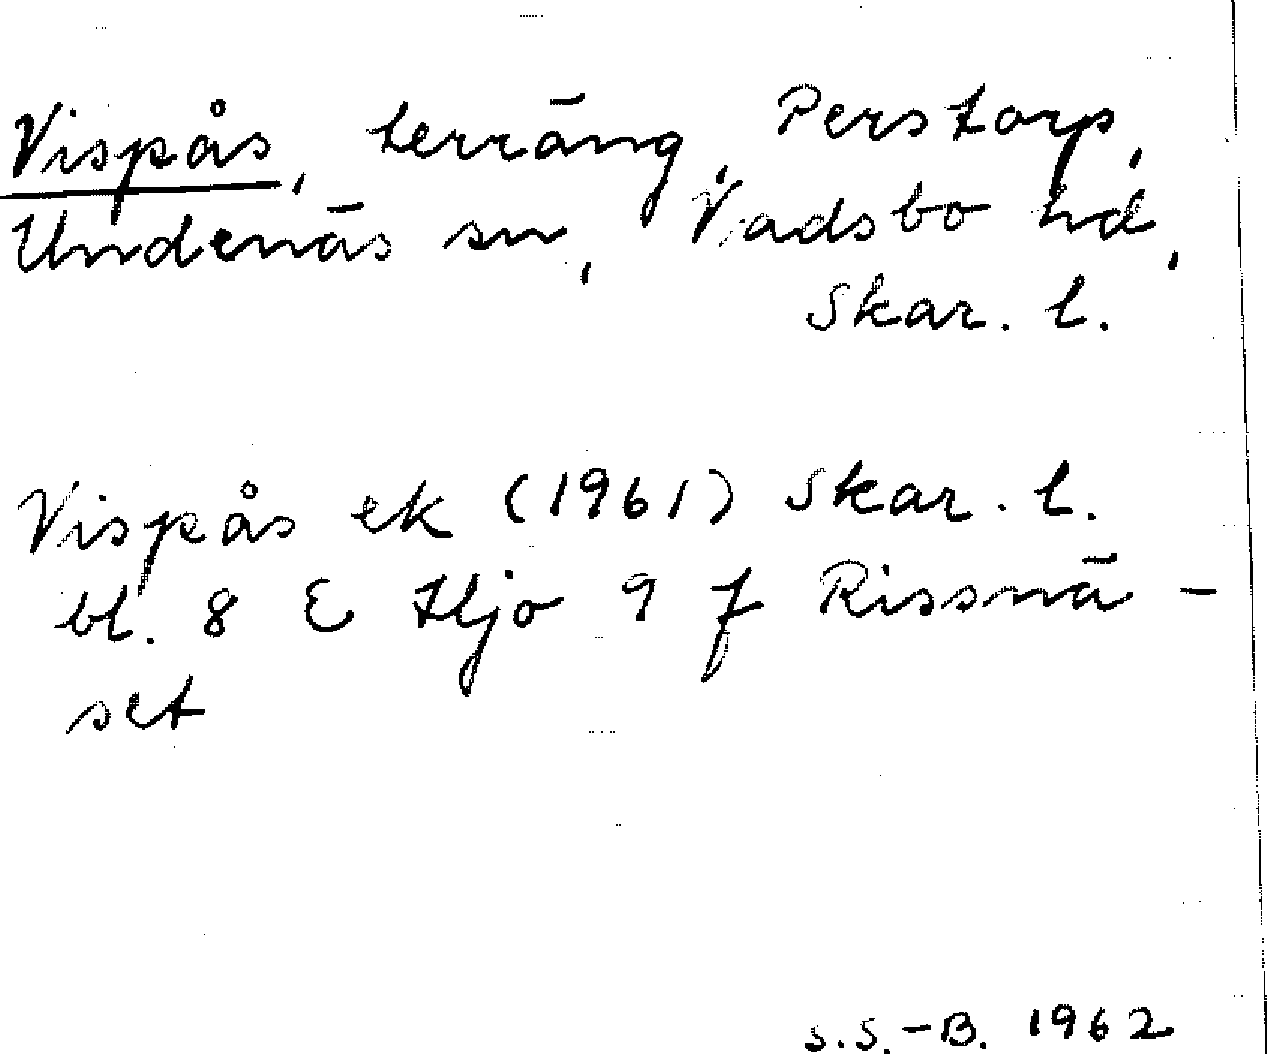 Vispås, terräng, Perstorp,
Undenäs sn, Vadsbo hd,
Skar. l.
Vispås ek (1961) Skar. l.
bl. 8 E Hjo 9 f Rissnä-
set
S.S.-B. 1962